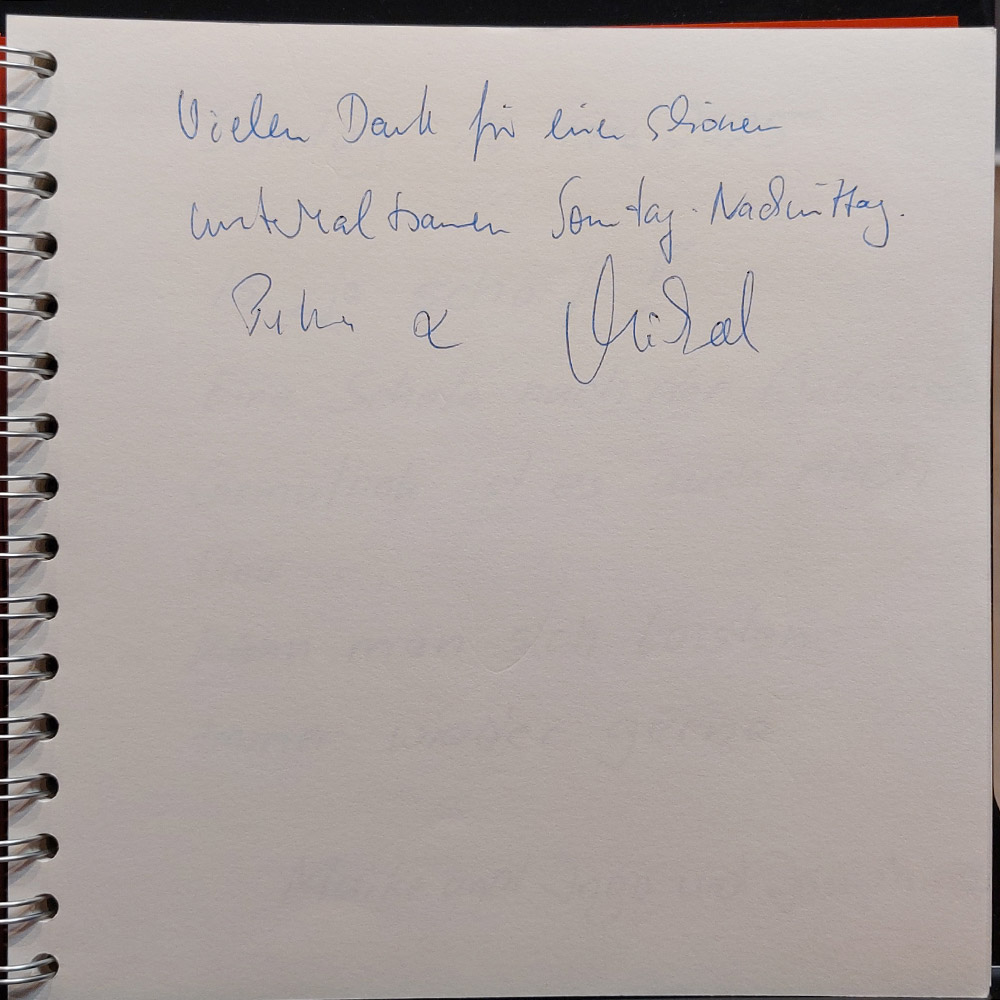 Vielen Dank für einen schönen
unterhaltsamen Sonntag-Nachmittag.
& Michael